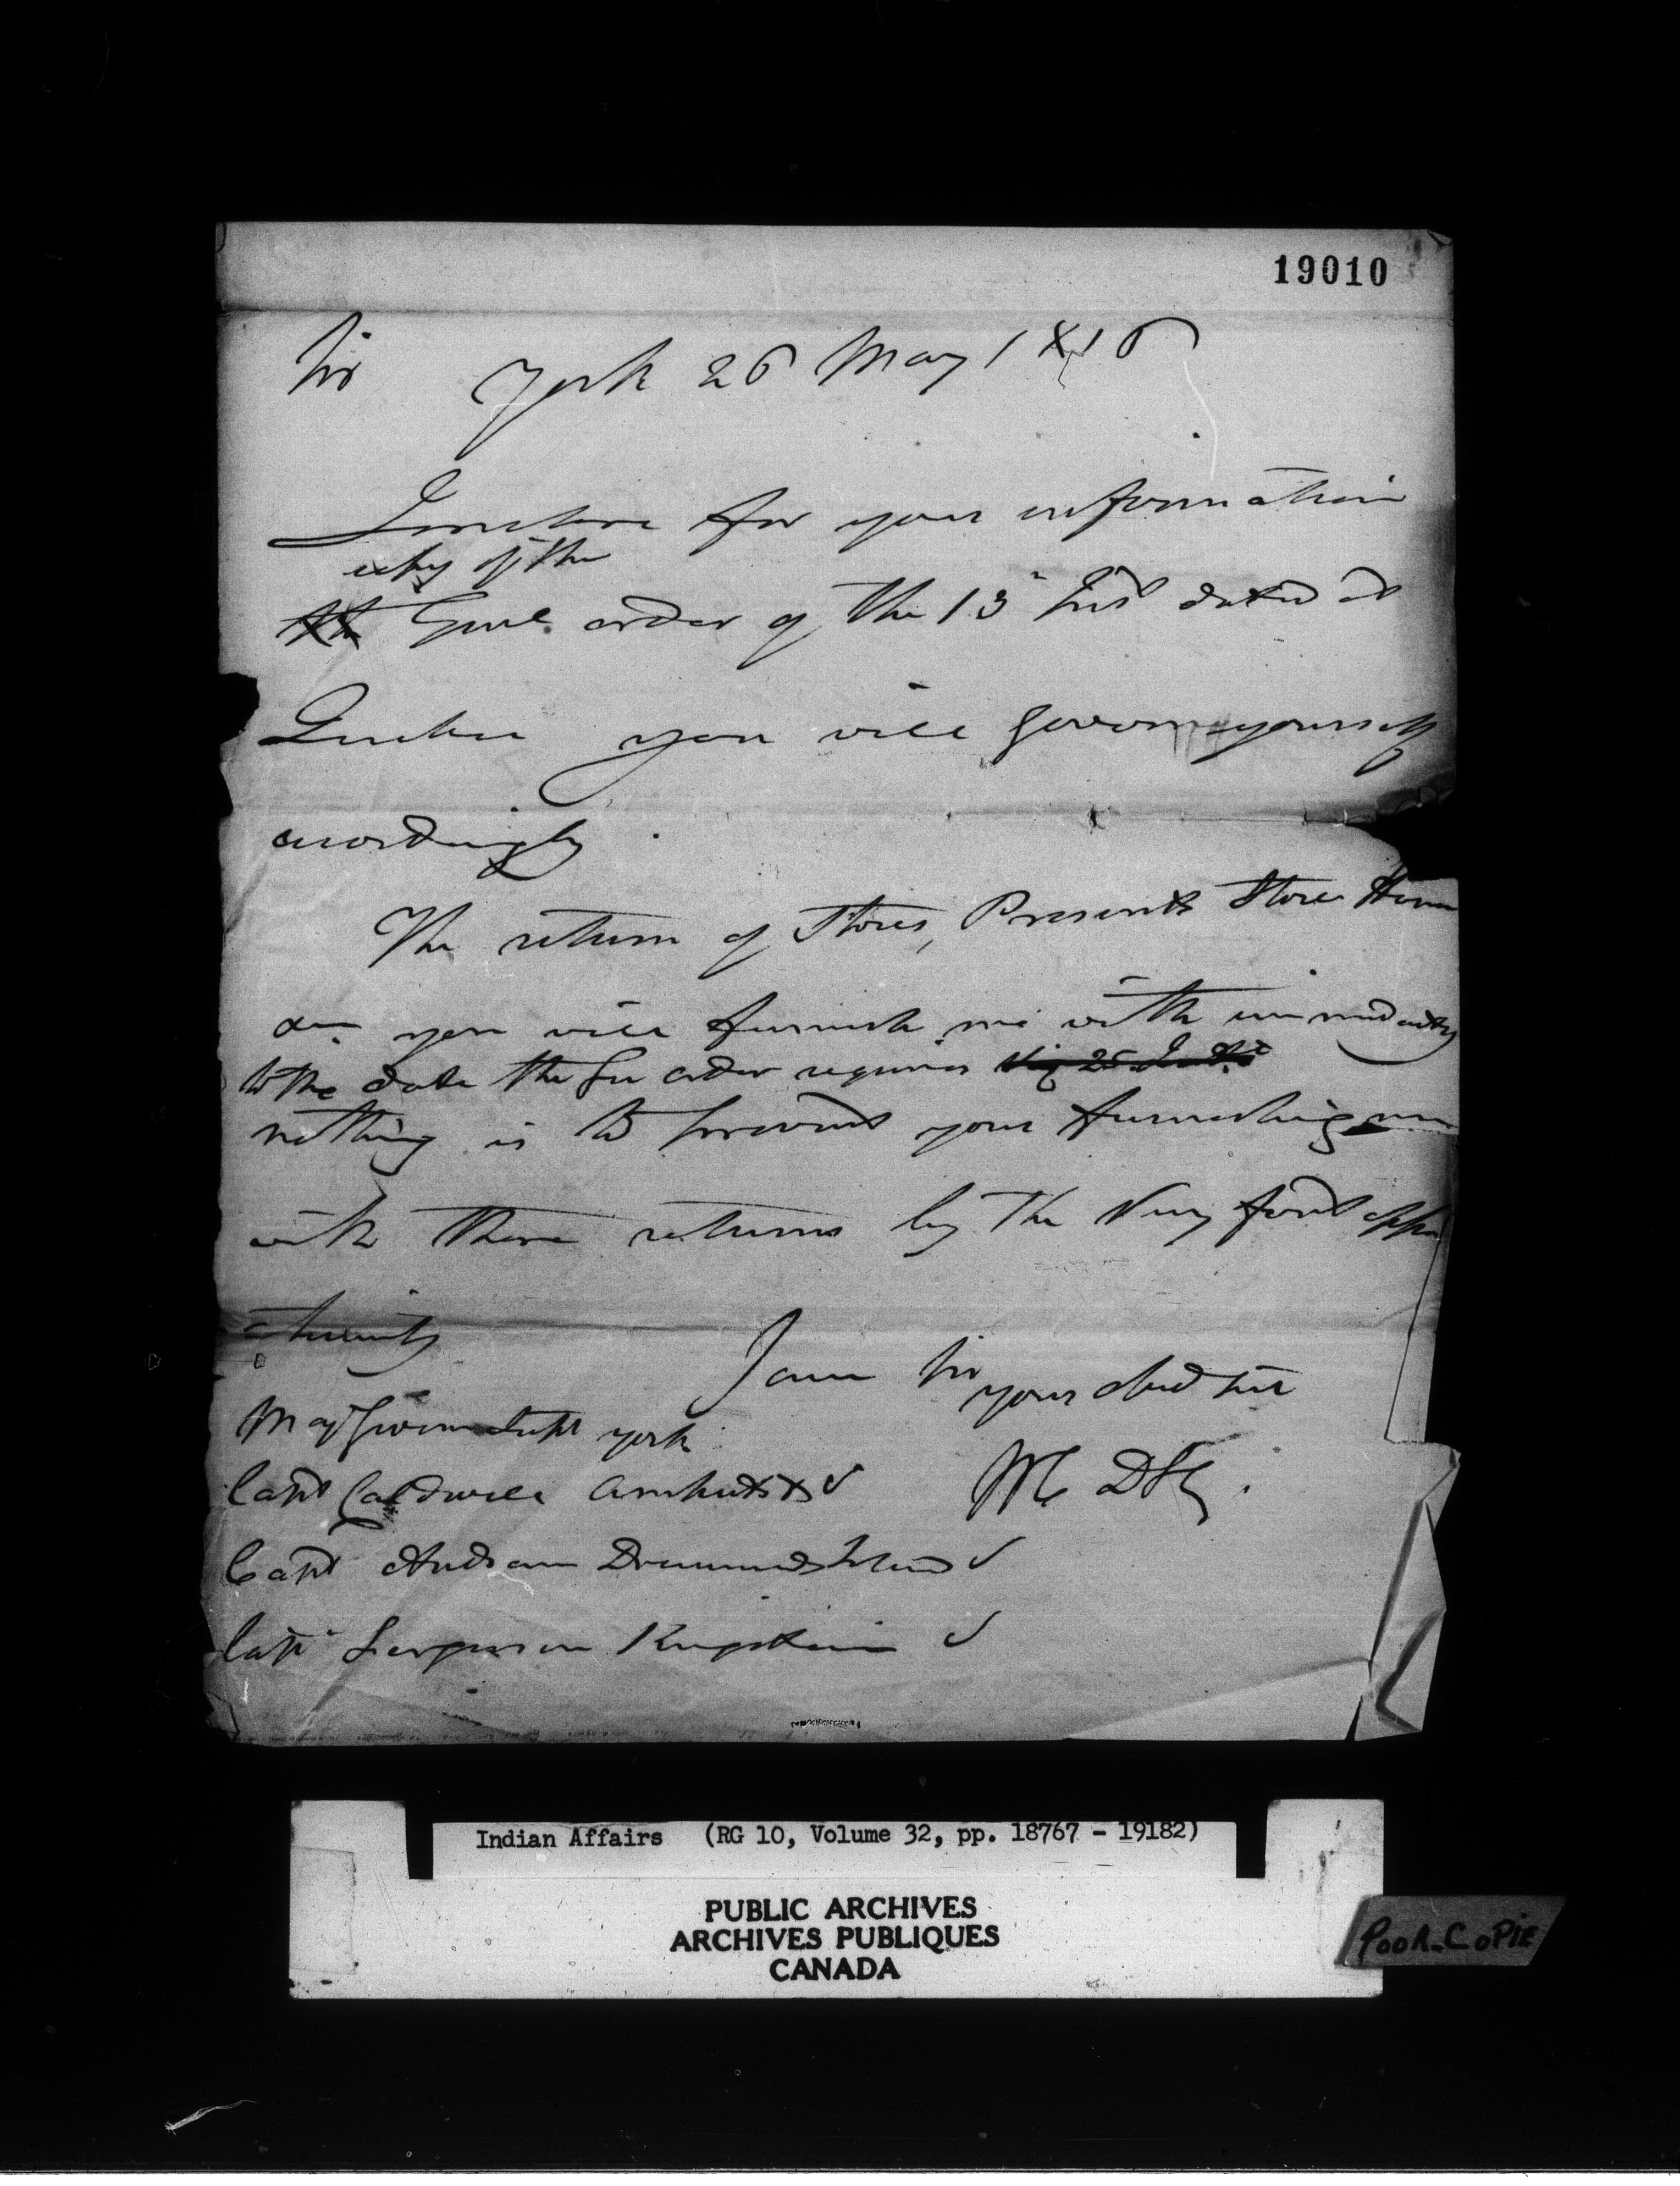 19010
Sir York 26 May 1816
I inclose for your information
copy of the
the Genl order of the 13th Inst dated at
Quebec you will govern yourself
accordingly
The return of Stores, Presents Store Houses
&c you will furnish me with immediately
to the date the Gen order requires viz 25
nothing is to prevent your furnishing me
with these returns by the very first oppor
=tunity
I am Sir
your obed Set
Maj Givins Supt York
Capt Caldwell Amherstb ✓
Capt Anderson Drummond Island ✓
Capt Ferguson Kingston ✓
Indian Affairs (RG 10, Volume 32, pp. 18767 - 19182)
PUBLIC ARCHIVES
ARCHIVES PUBLIQUES
CANADA
POOR COPIE